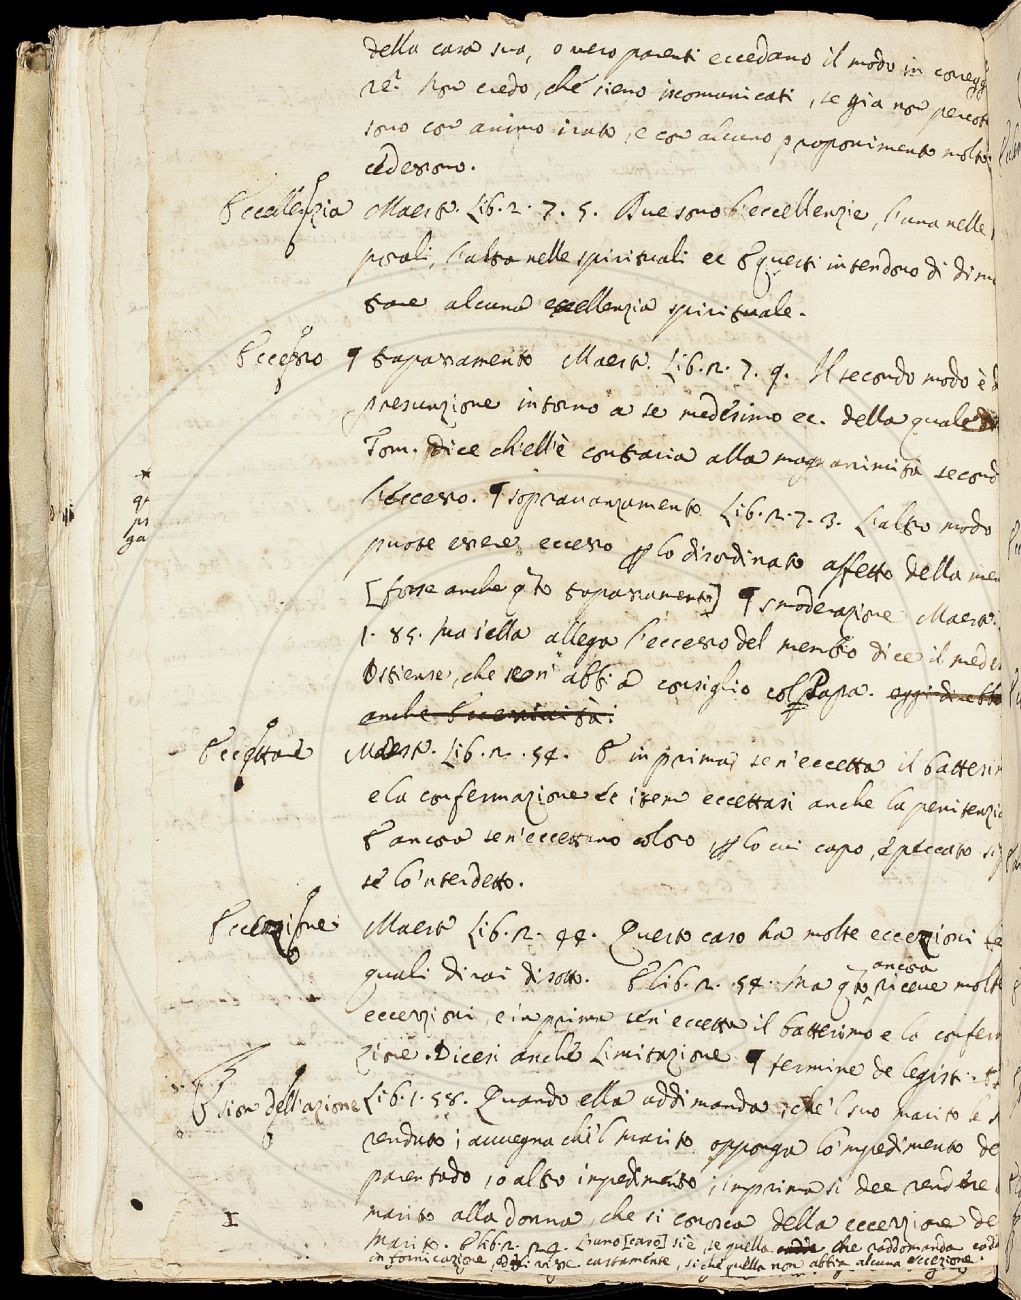 della casa sua, o vero parenti eccedano il modo in coregg
re. Non credo, che sieno iscomunicati, se gia non percot
sono con animo irato, e con alcuno proponimento molto
cedessono.
Eccellenzia Maestr. Lib. 2. 7. 5. Due sono l'eccellenzie, l'una nelle
porali, l'altra nelle spirituali ec E questi intendono di dimo
strare alcuna eccellenzia spirituale.
Eccesso ¶ trapassamento Maestr. Lib. 2. 7. 9. Il secondo modo è d
presunzione intorno a se medesimo ec. della quale
Tom. dice ch'ell'è contraria alla magnanimità second
l'eccesso. ¶ sopravanzamento Lib. 2. 7. 3. L'altro modo
puote essere eccesso p lo disordinato affetto della men
[forse anche qto trapassamento] ¶ smoderazione Maestr.
1. 85. Ma s'ella allega l'eccesso del membro dice il mede
Ostiense, che sen' abbi a consiglio col Papa. oggi direbbe
anche
Eccettare Maestr. Lib. 2. 54. E in prima se n'eccetta il battesim
e la confermazione Ec item eccettasi anche la penitenzia
E ancora se n'eccettano coloro, p lo cui capo, e peccato
se lo'nterdetto.
Eccezzione Maestr Lib. 2. 44. Questo caso ha molte eccezzioni le
quali dirai di sotto. E lib. 2. 54. Ma qto ancora riceve molte
eccezzioni, e in prima sen' eccetta il battesimo e la conferm
zione. Dicesi anche Limitazione ¶ termine de legisti.
Lib. 1. 58. Quando ella addimanda, che'l suo marito le s
renduto; avvegna che'l marito opponga lo'mpedimento de
parentado, o altro impedimento; imprima si dee rendere
marito alla donna, che si conosca della eccezzione de
Marito. E lib. 2. 24. L'uno [caso] si è, se quella che raddomanda cadd
in fornicazione, ed vive castamente, sichè quella non abbia alcuna eccezione.
I